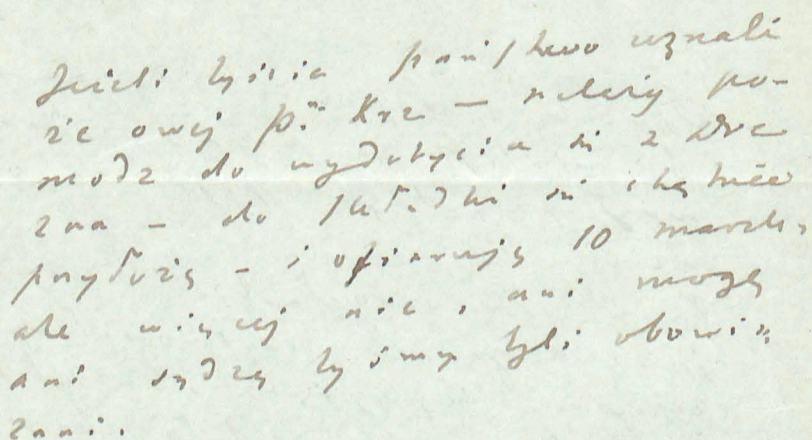 Jeżeli byście państwo uznali
że owej pni Krz — należy po-
módz do wydobycia się z Dre
zna — do składki się chętnie
przyłożę — i ofiaruję 10 marek,
ale więcej nie, ani mogę
ani sądzę byśmy byli obowią
zani.